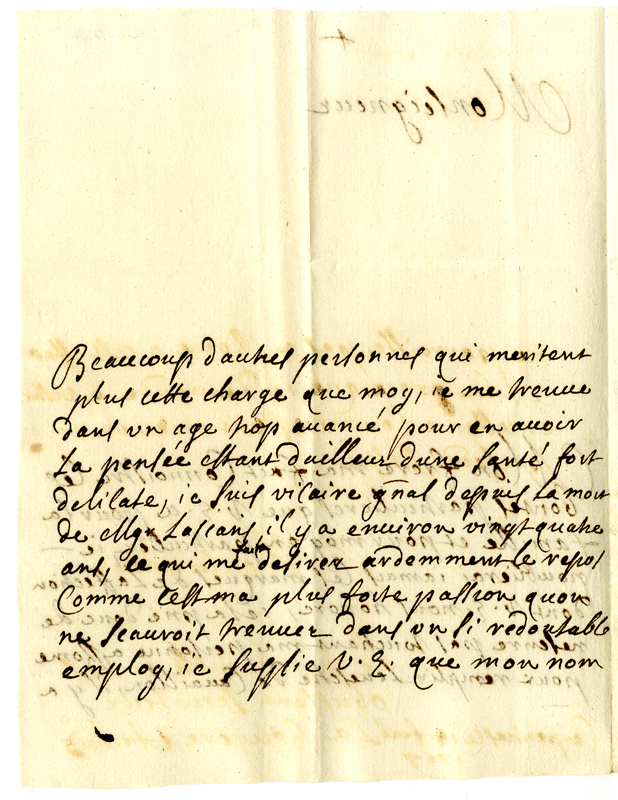 Monseigneur
Beaucoup dautres personnes qui meritent
plus cette charge que moy, ie me treuue
dans vn age trop auancé pour en auoir
la pensée estant dailleur dune santé fort
delicate, ie suis vicaire gnal depuis la mort
de Mgr Lascaris, il y a environ vingt quatre
ans, ce qui me fait desirer ardemment le repos
Comme cest ma plus forte passion quon
ne scauroit treuuer dans vn si redoutable
employ, ie supplie V. E. que mon nom